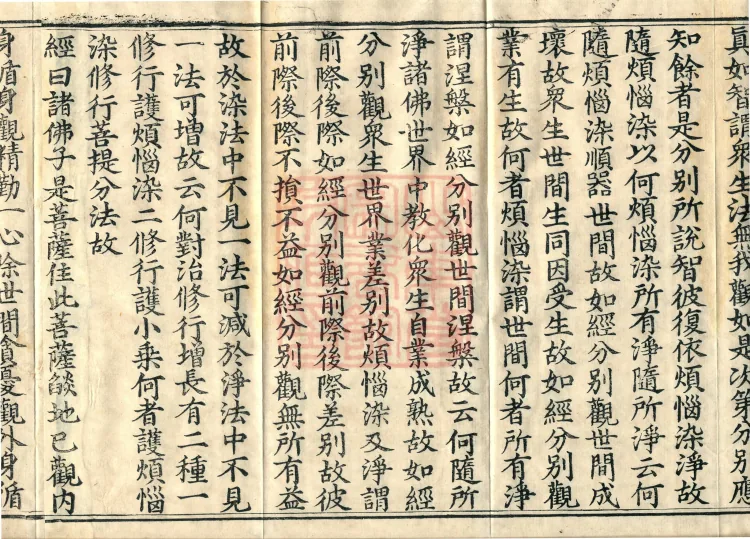 真如智謂衆生法無我觀如是次第分別應
知餘者是分別所說智彼復依煩惱染淨故
隨煩惱染以何煩惱染所有淨隨所淨云何
隨煩惱染順器世間故如經分別觀世間成
壞故衆生世間生同因受生故如經分別觀
業有生故何者煩惱染謂世間何者所有淨
謂涅槃如經分別觀世間涅槃故云何隨所
淨諸佛世界中教化衆生自業成熟故如經
分別觀衆生世界業差別故煩惱染及淨謂
前際後際如經分別觀前際後際差別故彼
前際後際不損不益如經分別觀無所有益
故於染法中不見一法可減於淨法中不見
一法可增故云何對治修行增長有二種一
修行護煩惱染二修行護小乘何者護煩惱
染修行菩提分法故
經曰諸佛子是菩薩住此菩薩燄地已觀內
身循身觀精勤一心除世間貪憂觀外身循